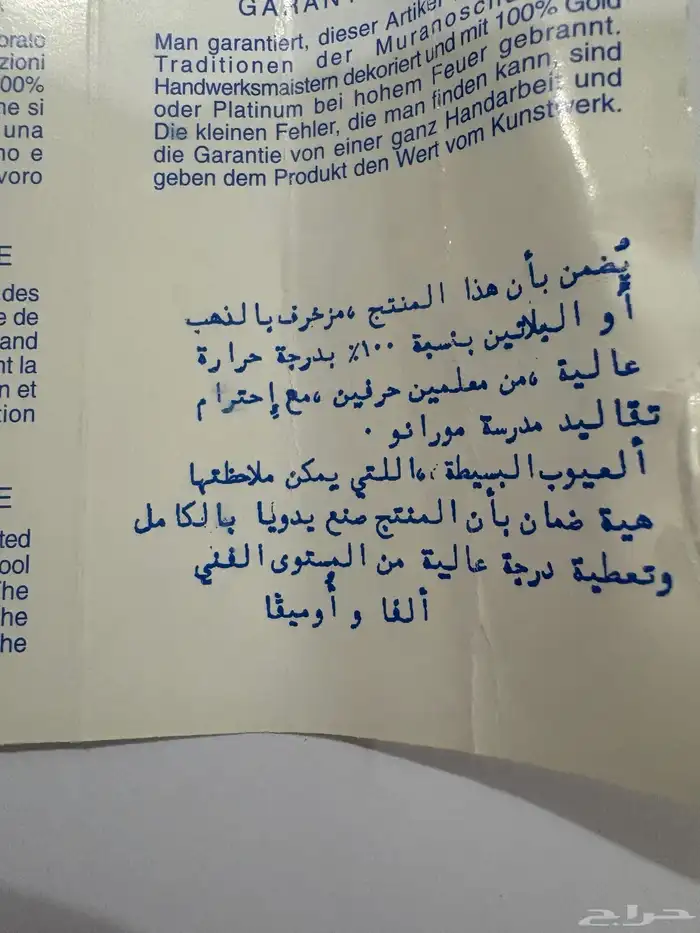 GARAN
Man garantiert, dieser Artikel
Traditionen der Muranosch
Handwerksmaistern dekoriert und mit 100% Gold
oder Platinum bei hohem Feuer gebrannt.
Die kleinen Fehler, die man finden kann, sind
die Garantie von einer ganz Handarbeit und
geben dem Produkt den Wert vom Kunstwerk.
orato
zioni
00%
ne si
una
no e
voro
E
des
e de
and
nt la
n et
tion
E
ted
ool
The
he
he
he
يُضمن بأن هذا المنتج ،مزخرف بالذهب
أو البلاتين بنسبة ١٠٠٪ بدرجة حرارة
عالية ،من معلمين حرفين ،مع إحترام
تقاليد مدرسة مورانو .
ألعيوب البسيطة ،اللتي يمكن ملاحظتها
هية ضمان بأن المنتج صنع يدويا بالكامل
وتعطية درجة عالية من المستوى الفني
ألفا و أوميڤا
حراج